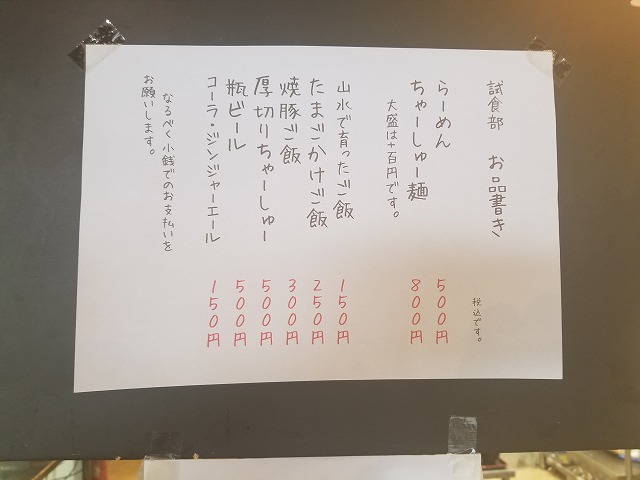 試食部 お品書き
税込です。
らーめん 500円
ちゃーしゅー麺 800円
大盛は+百円です。
山水で育ったご飯 150円
たまごかけご飯 250円
焼豚ご飯 300円
厚切りちゃーしゅー 500円
瓶ビール 500円
コーラ・ジンジャーエール 150円
なるべく小銭でのお支払いを
お願いします。